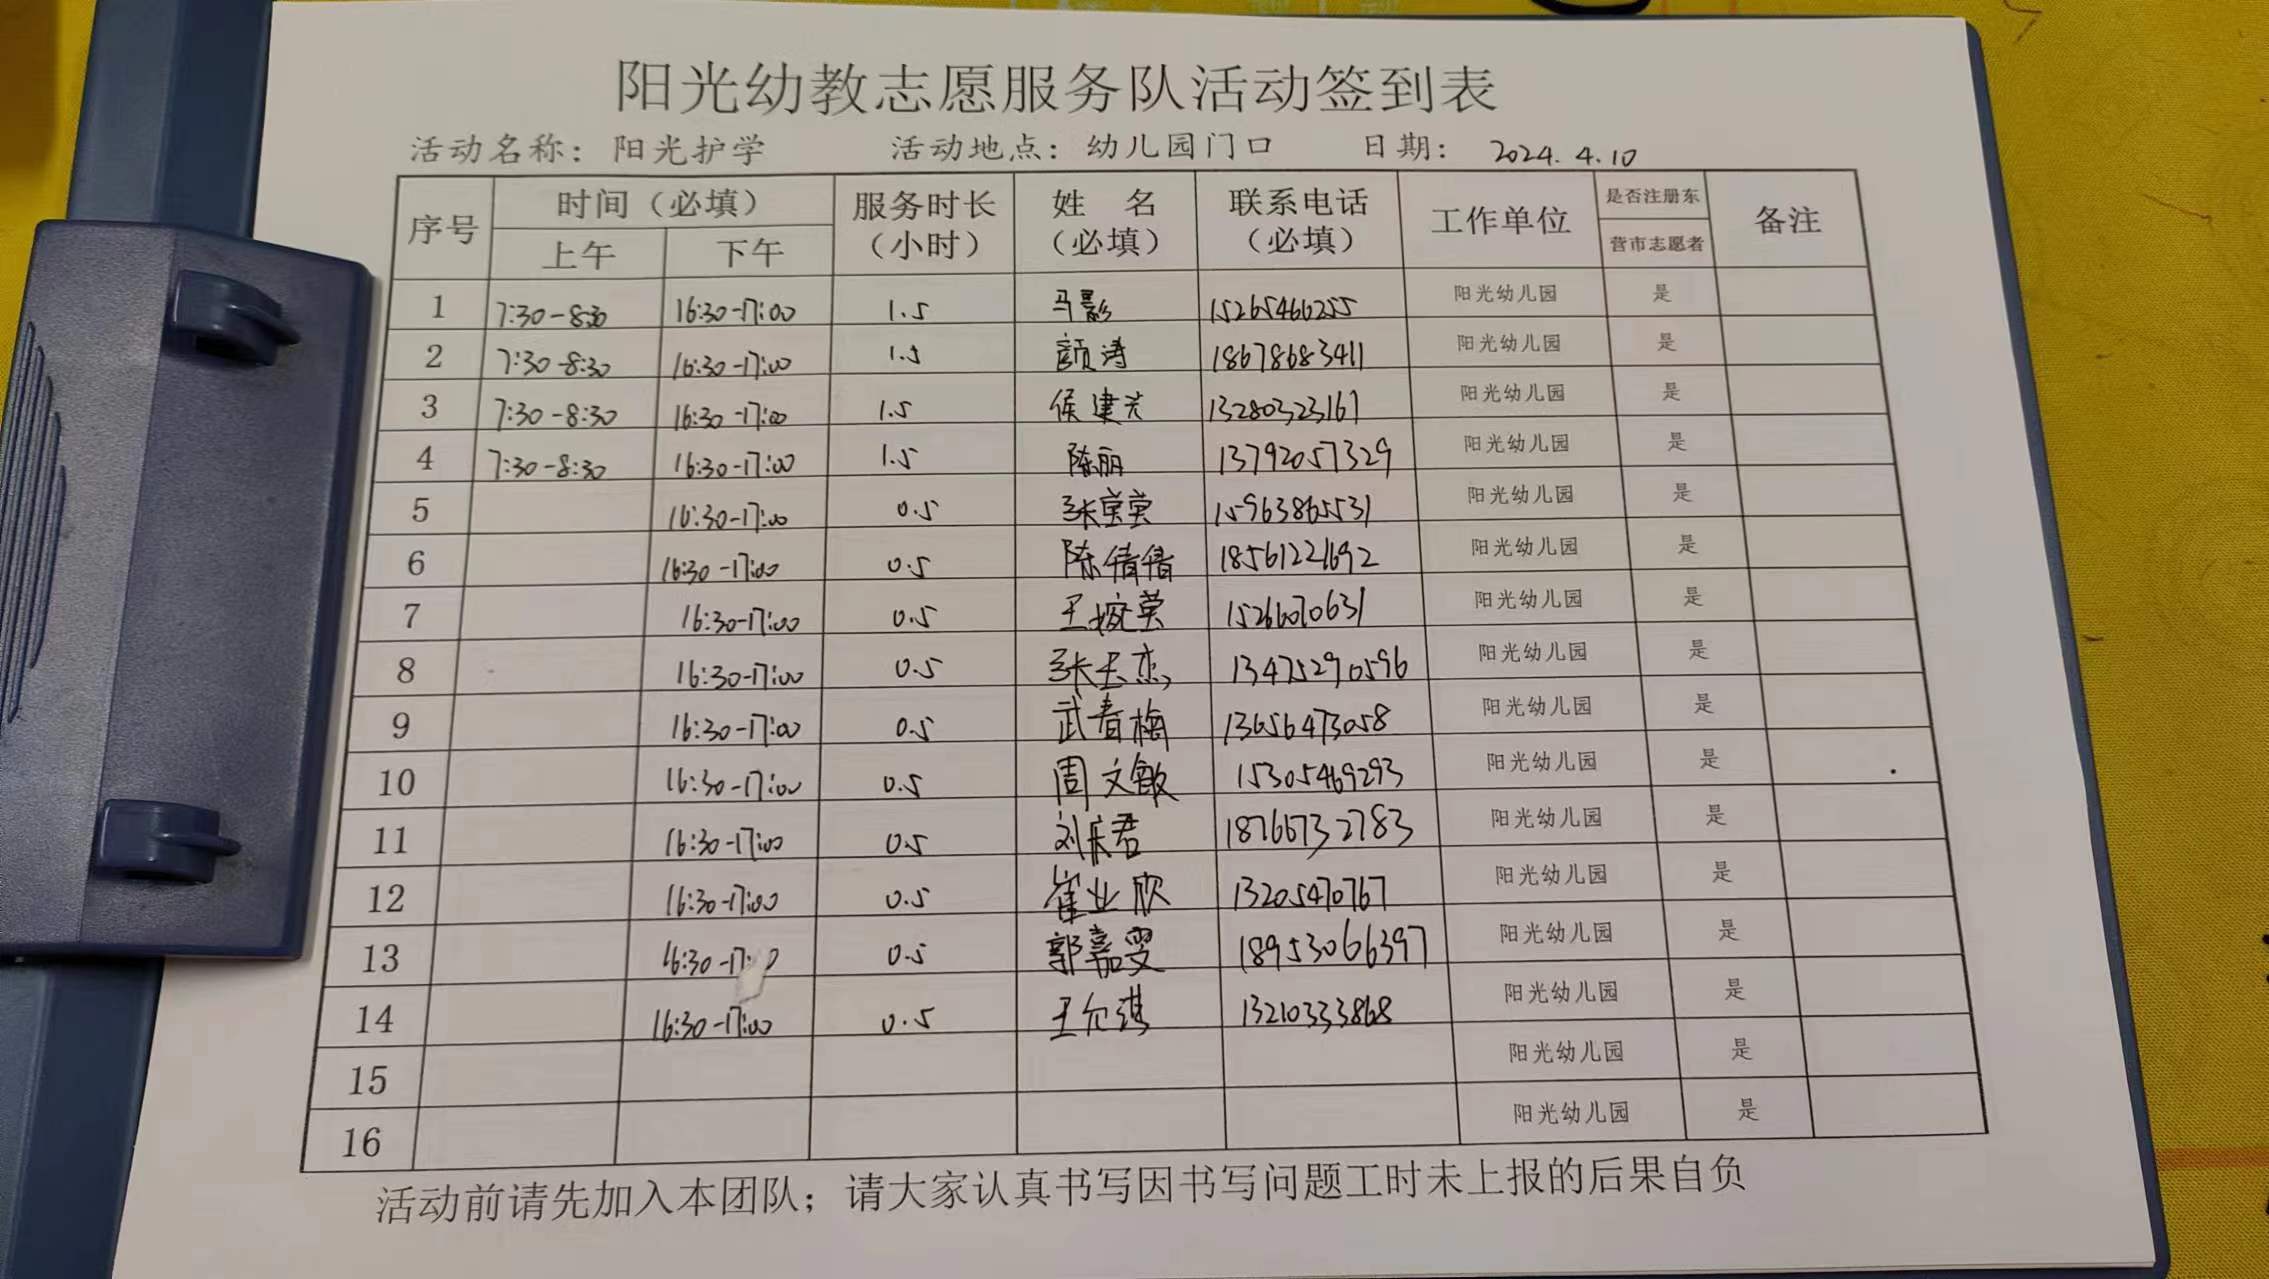 阳光幼教志愿服务队活动签到表
活动名称：阳光护学 活动地点：幼儿园门口 日期：2024.4.10
序号 时间（必填） 服务时长（小时） 姓 名（必填） 联系电话（必填） 工作单位 是否注册东营市志愿者 备注
上午 下午
1 7:30-8:30 16:30-17:00 1.5 马影 15265466255 阳光幼儿园 是
2 7:30-8:30 16:30-17:00 1.5 颜涛 18678683411 阳光幼儿园 是
3 7:30-8:30 16:30-17:00 1.5 侯建 13280323167 阳光幼儿园 是
4 7:30-8:30 16:30-17:00 1.5 陈丽 13792057329 阳光幼儿园 是
5 16:30-17:00 0.5 张莹莹 15963865531 阳光幼儿园 是
6 16:30-17:00 0.5 陈倩倩 18561221692 阳光幼儿园 是
7 16:30-17:00 0.5 王婉莹 阳光幼儿园 是
8 16:30-17:00 0.5 张玉杰 13475290596 阳光幼儿园 是
9 16:30-17:00 0.5 武春梅 13656473058 阳光幼儿园 是
10 16:30-17:00 0.5 周文敏 15305469293 阳光幼儿园 是
11 16:30-17:00 0.5 刘君 18766732783 阳光幼儿园 是
12 16:30-17:00 0.5 崔业欣 13205470767 阳光幼儿园 是
13 16:30-17: 0 0.5 郭嘉雯 18953066397 阳光幼儿园 是
14 16:30-17:00 0.5 王允琪 13210333868 阳光幼儿园 是
15 阳光幼儿园 是
16 阳光幼儿园 是
活动前请先加入本团队；请大家认真书写因书写问题工时未上报的后果自负